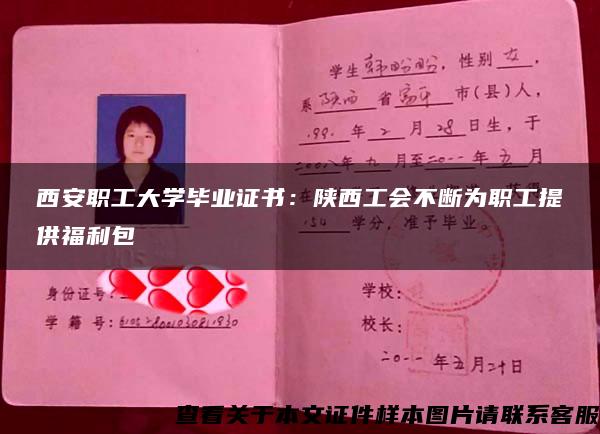 学生韩盼盼，性别女，
系陕西省富平市(县)人，
1991年2月28日生，于
二00八年九月至二0一一年五月
西安职工大学毕业证书：陕西工会不断为职工提
供福利包
154学分，准予毕业。
身份证号：
学籍号：
学校：
校长：
二0一一年五月二十日
查看关于本文证件样本图片请联系客服